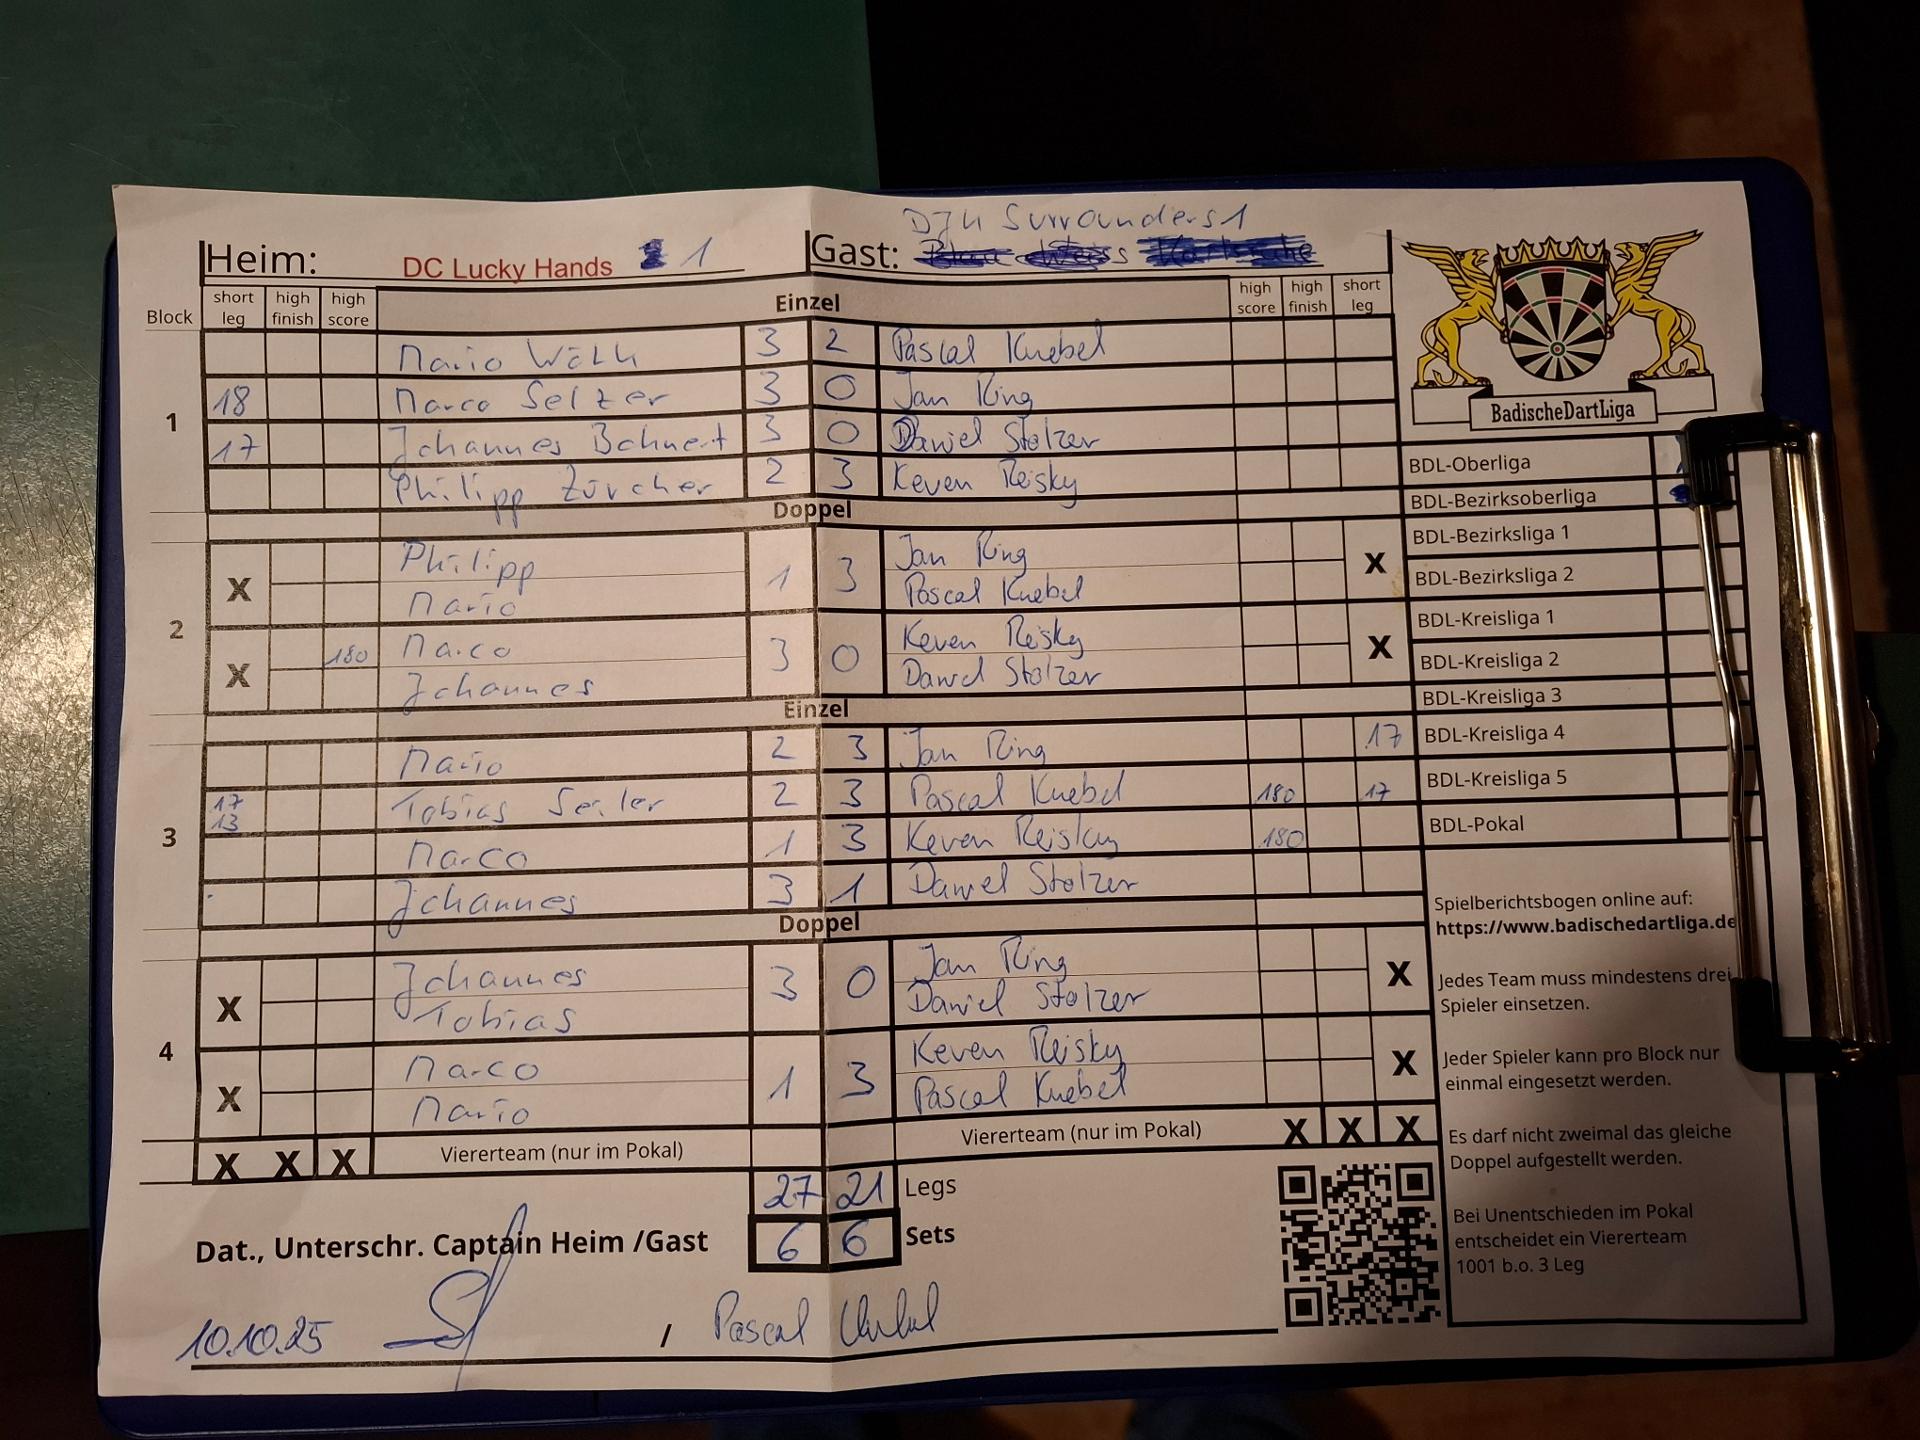 DJK Surrounders 1
Heim: DC Lucky Hands 1 Gast:
Block short leg high finish high score Einzel high score high finish short leg
1
Mario Wölk 3 2 Pascal Knebel
18 Marco Selzer 3 0 Jan Ring
17 Johannes Bohnert 3 0 Daniel Stolzer
Philipp Zürcher 2 3 Keven Reisky
Doppel
2
X Philipp 1 3 Jan Ring X
Mario Pascal Knebel
X 180 Marco 3 0 Keven Reisky X
Johannes Daniel Stolzer
Einzel
3
Mario 2 3 Jan Ring 17
17 13 Tobias Seiler 2 3 Pascal Knebel 180 17
Marco 1 3 Keven Reisky 180
Johannes 3 1 Daniel Stolzer
Doppel
4
X Johannes 3 0 Jan Ring X
Tobias Daniel Stolzer
X Marco 1 3 Keven Reisky X
Mario Pascal Knebel
X X X Viererteam (nur im Pokal) Viererteam (nur im Pokal) X X X
27 21 Legs
6 6 Sets
Dat., Unterschr. Captain Heim /Gast
10.10.25 / Pascal Knebel
BadischeDartLiga
BDL-Oberliga
BDL-Bezirksoberliga
BDL-Bezirksliga 1
BDL-Bezirksliga 2
BDL-Kreisliga 1
BDL-Kreisliga 2
BDL-Kreisliga 3
BDL-Kreisliga 4
BDL-Kreisliga 5
BDL-Pokal
Spielberichtsbogen online auf:
https://www.badischedartliga.de
Jedes Team muss mindestens drei
Spieler einsetzen.
Jeder Spieler kann pro Block nur
einmal eingesetzt werden.
Es darf nicht zweimal das gleiche
Doppel aufgestellt werden.
Bei Unentschieden im Pokal
entscheidet ein Viererteam
1001 b.o. 3 Leg